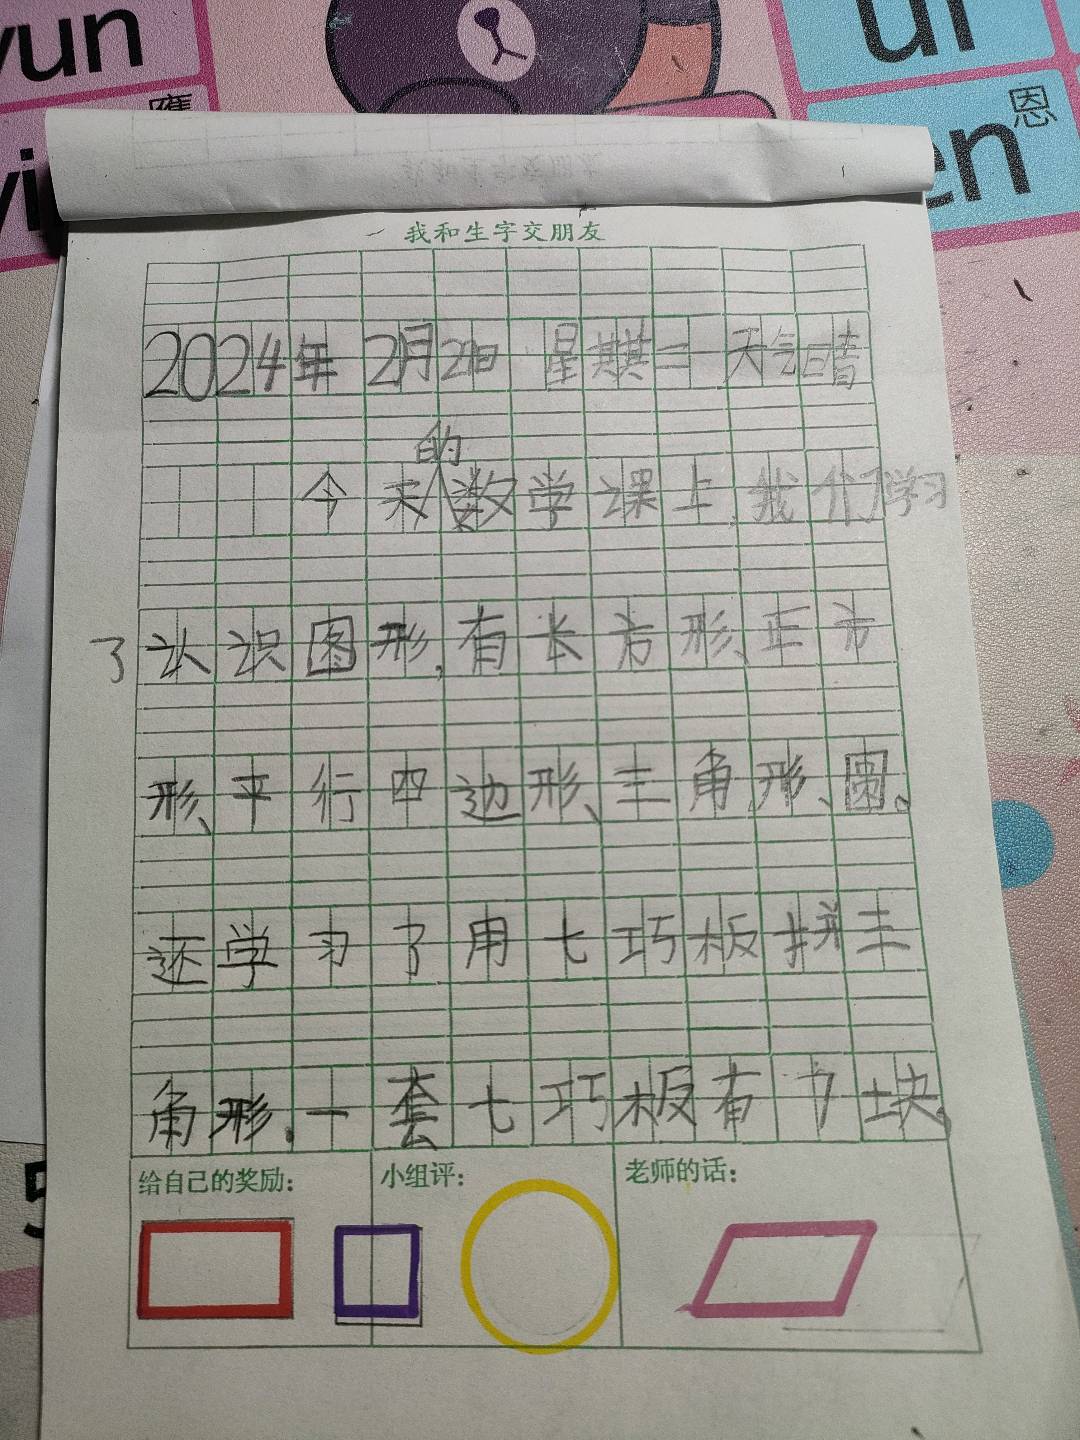 yun
ui
鹰
恩
yi
en
我和生字交朋友
2024年 2月21日 星期二 天气晴
今天的数学课上,我们学习
了认识图形,有长方形、正方
形、平行四边形、三角形、圆。
还学习了用七巧板拼三
角形。一套七巧板有7块。
给自己的奖励: 小组评: 老师的话: